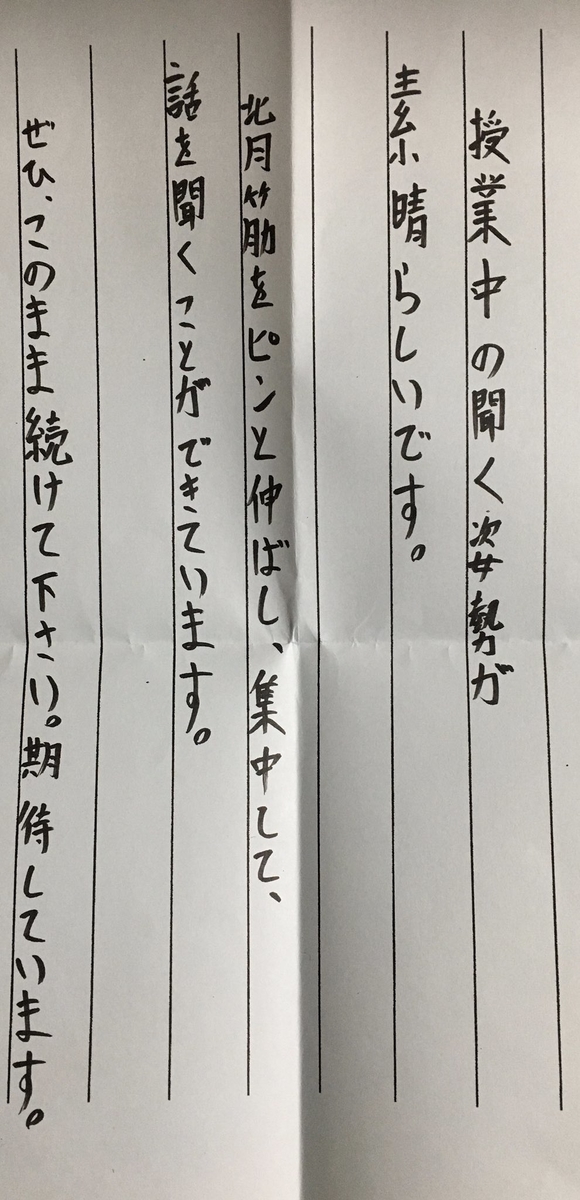 授業中の聞く姿勢が
素晴らしいです。
背筋をピンと伸ばし、集中して、
話を聞くことができています。
ぜひ、このまま続けて下さい。期待しています。